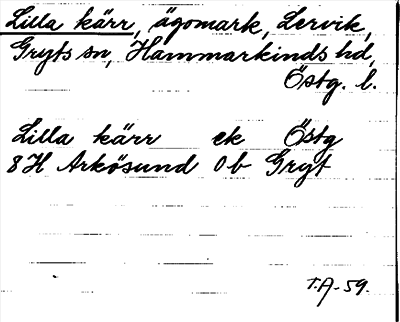 Lilla kärr, ägomark, Lervik,
Gryts sn, Hammarkinds hd,
Östg. l.
Lilla kärr ek Östg
8H Arkösund 0b Gryt
T.A-59.